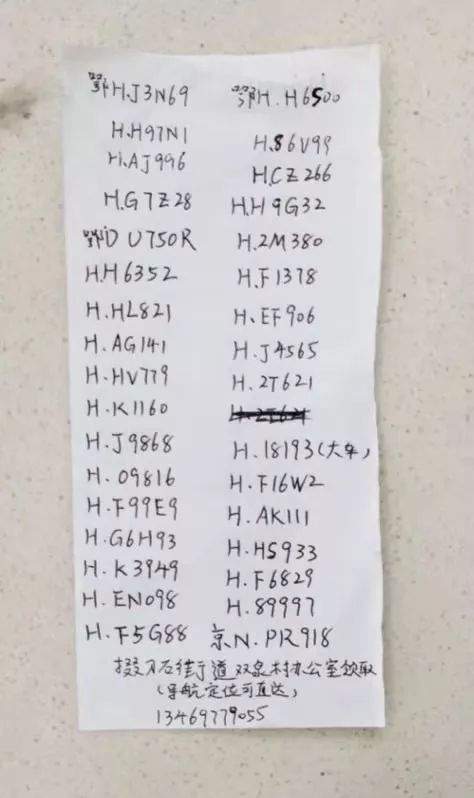 鄂H.J3N69 鄂H.H6500
H.H97N1 H.86V99
H.AJ996 H.CZ266
H.G7Z28 H.H9G32
鄂D U750R H.2M380
H.H6352 H.F1378
H.HL821 H.EF906
H.AG141 H.J4565
H.HV779 H.2T621
H.K1160
H.J9868 H.18193(大车)
H.09816 H.F16W2
H.F99E9 H.AK111
H.G6H93 H.HS933
H.K3949 H.F6829
H.EN098 H.89997
H.F5G88 京N.PR918
掇刀石街道双泉村办公室领取
(导航定位可直达)
13469779055